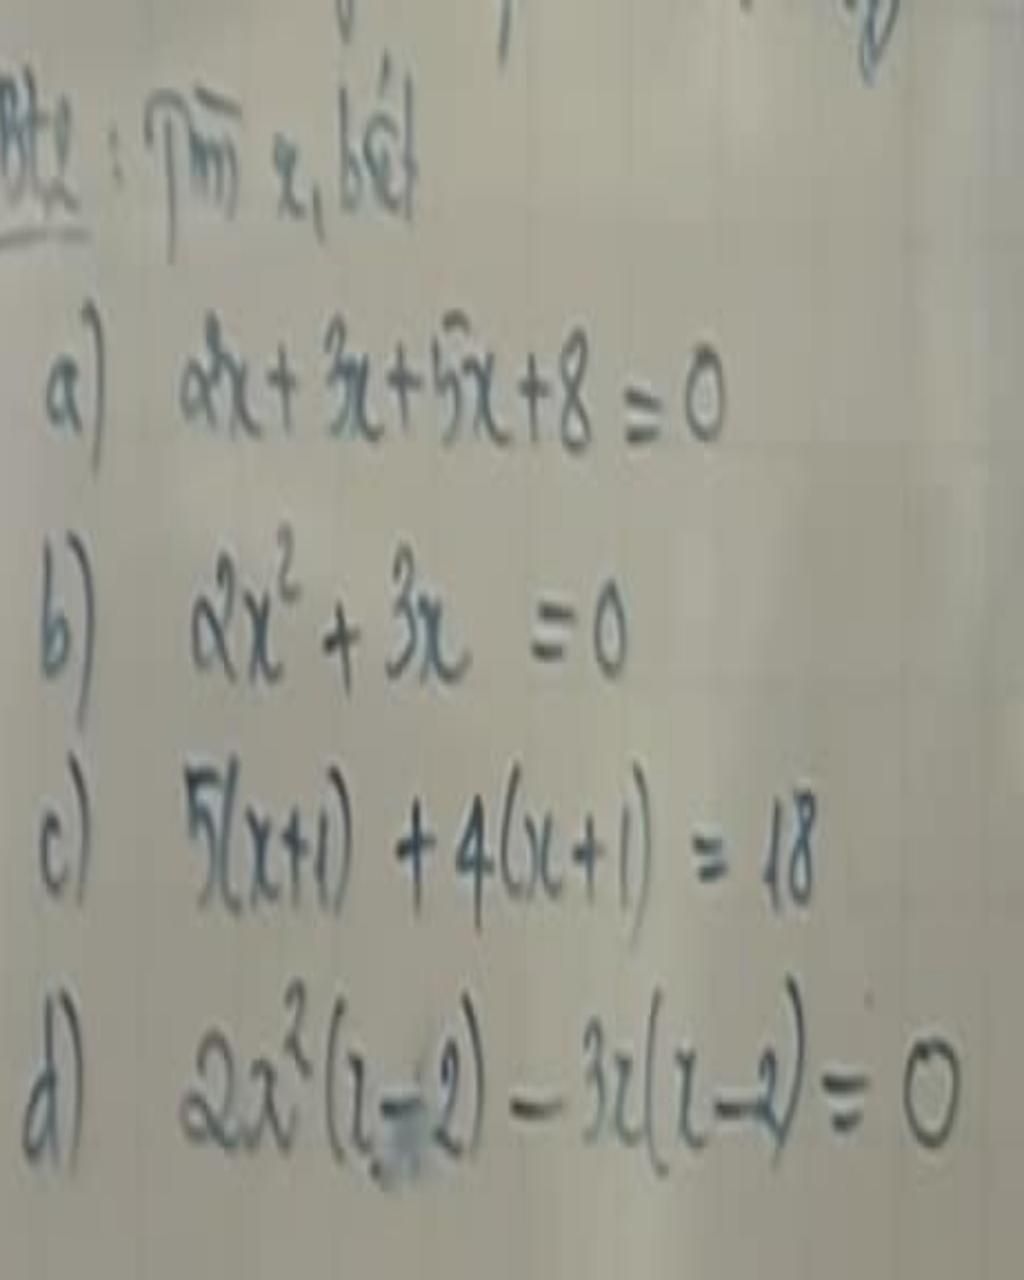 Bt2 : Tìm x, biết
a) 2x + 3x + 5x + 8 = 0
b) 2x² + 3x = 0
c) 5(x+1) + 4(x+1) = 18
d) 2x²(x-2) - 3x(x-2) = 0